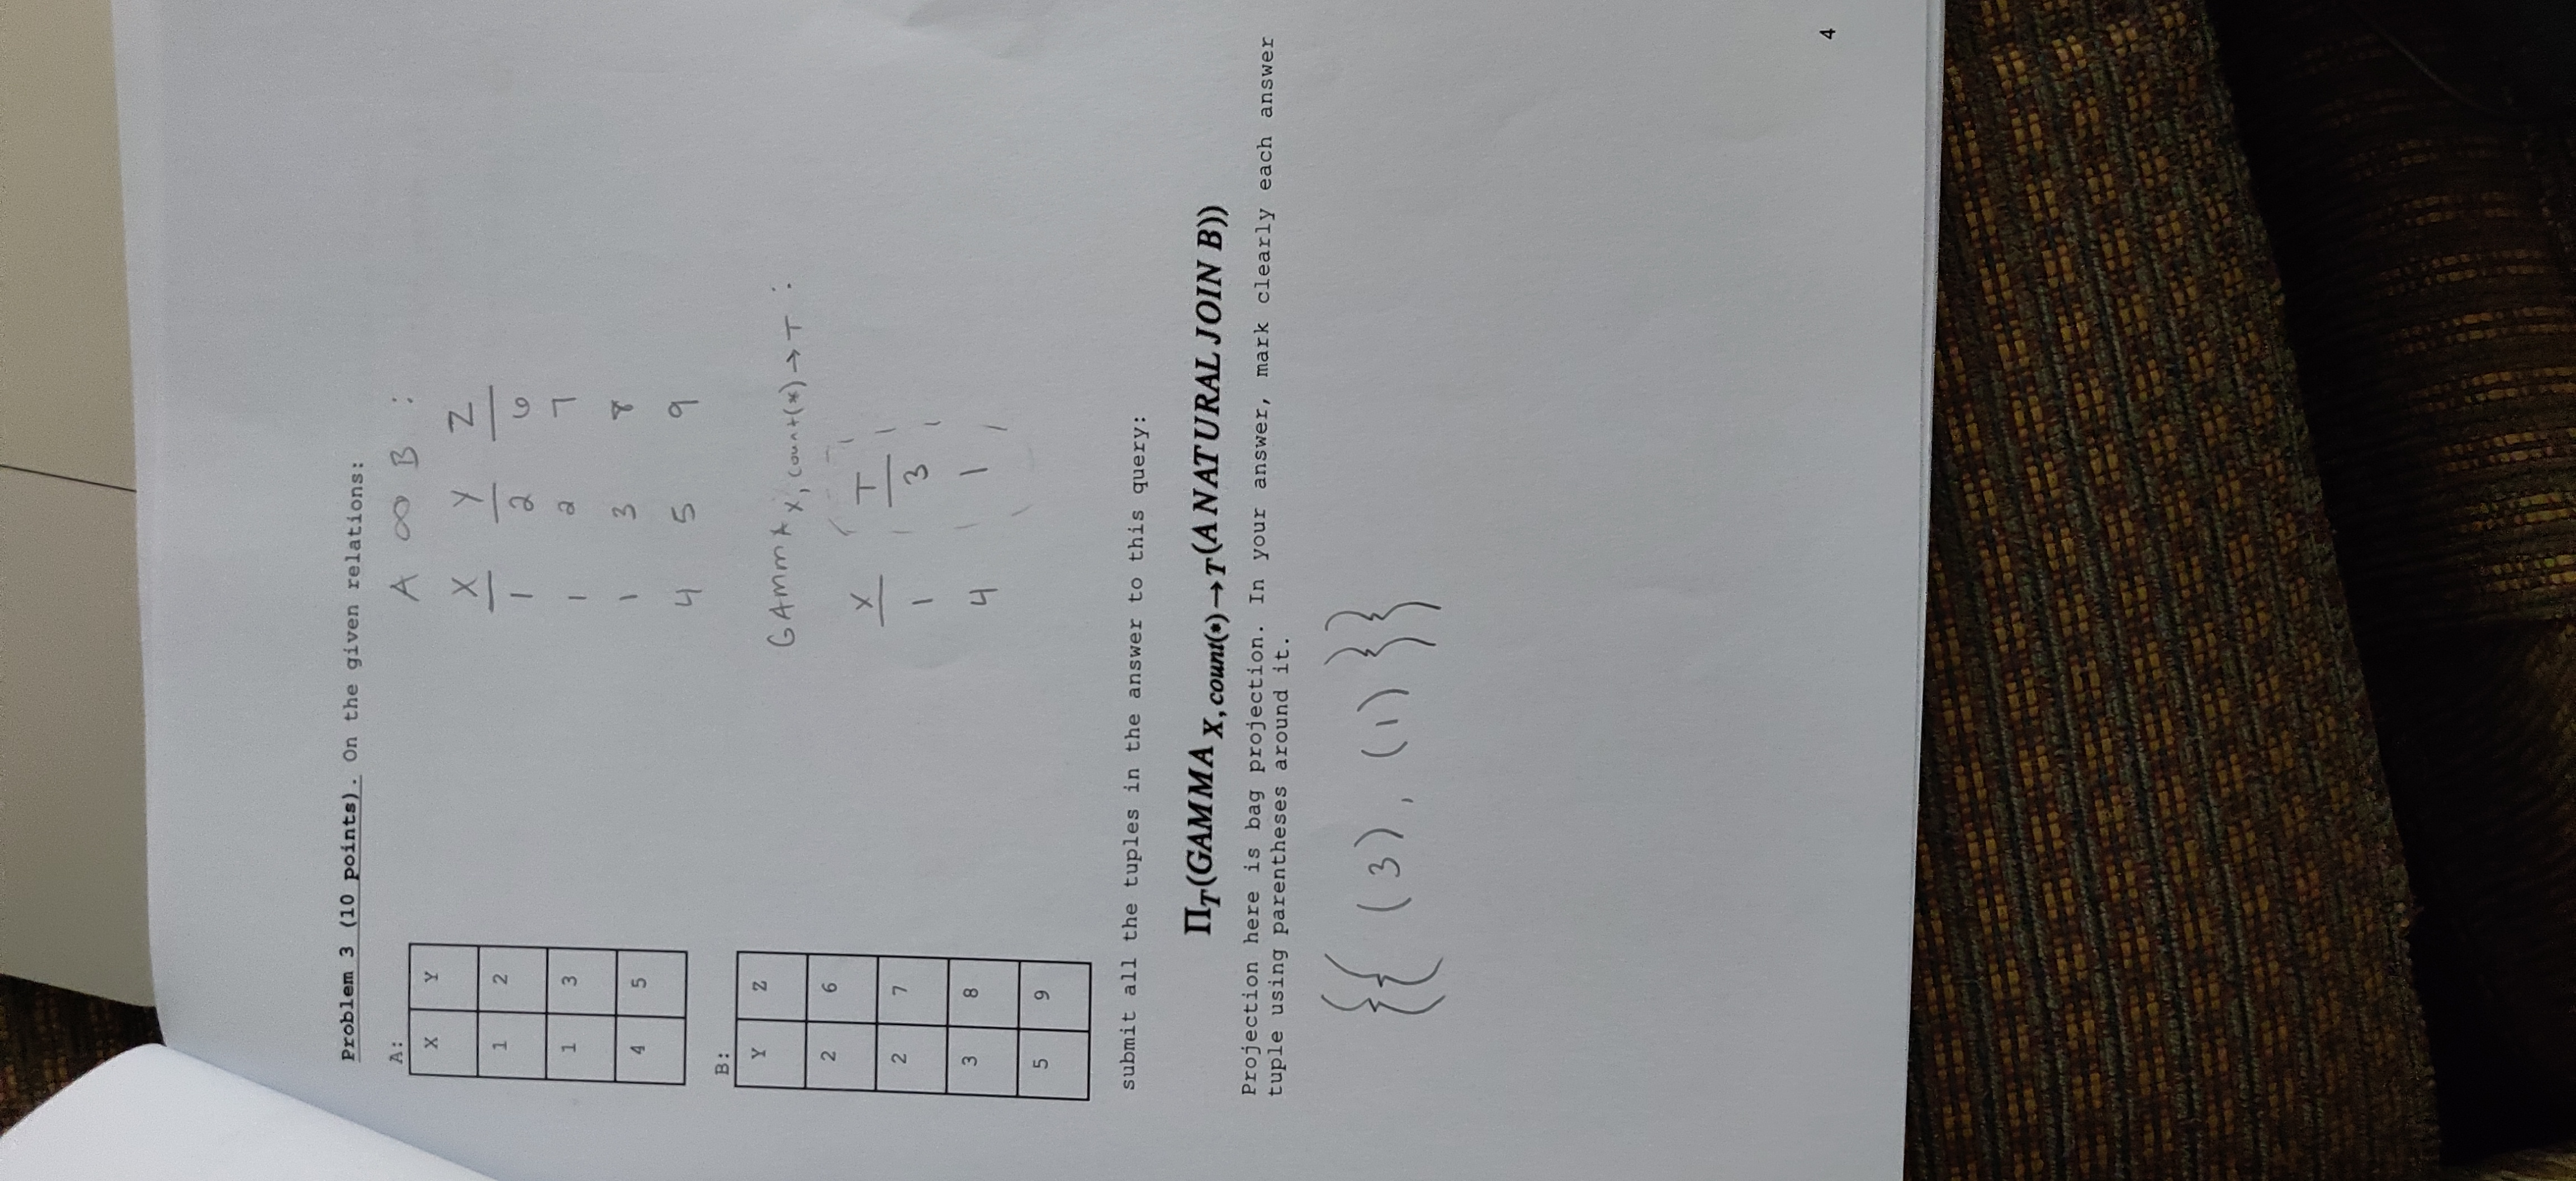 Problem 3 (10 points). On the given relations:
A:
X Y
1 2
1 3
4 5
B:
Y Z
2 6
2 7
3 8
5 9
A ∞ B :
X Y Z
1 2 6
1 2 7
1 3 8
4 5 9
GAmmA X, count(*) → T :
X T
1 3
4 1
submit all the tuples in the answer to this query:
Π_T(GAMMA X, count(*) → T (A NATURAL JOIN B))
Projection here is bag projection. In your answer, mark clearly each answer
tuple using parentheses around it.
{{ (3), (1) }}
4